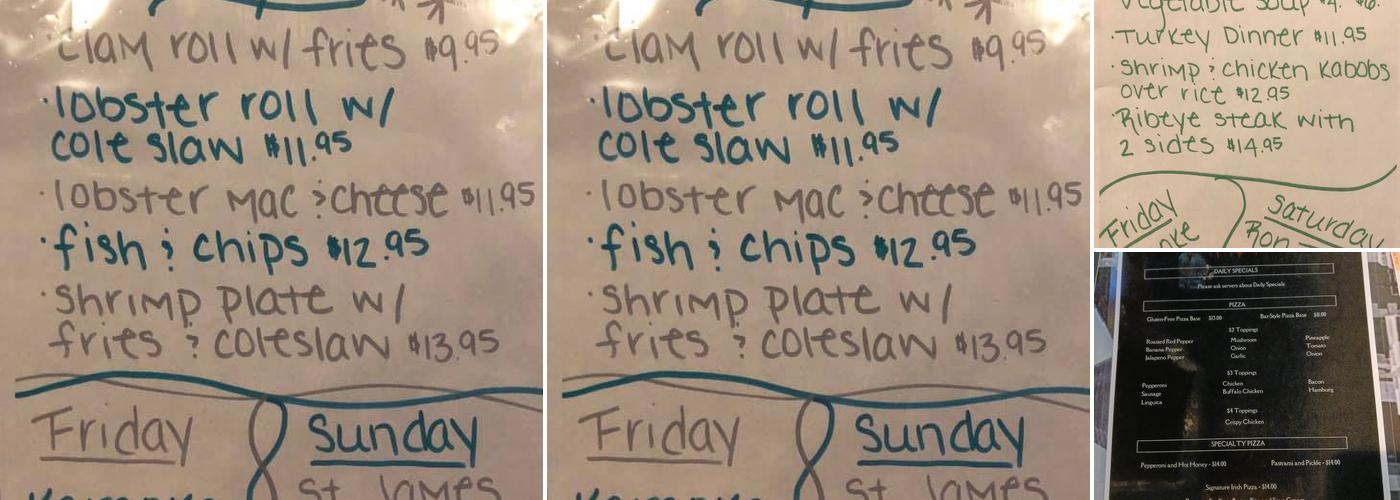 ·clam roll w/ fries $9.95
·lobster roll w/
cole slaw $11.95
·lobster mac & cheese $11.95
·fish & chips $12.95
·shrimp plate w/
fries & coleslaw $13.95
Friday
Sunday
St. James
·clam roll w/ fries $9.95
·lobster roll w/
cole slaw $11.95
·lobster mac & cheese $11.95
·fish & chips $12.95
·shrimp plate w/
fries & coleslaw $13.95
Friday
Sunday
St. James
Vegetable soup $4.
·Turkey Dinner $11.95
·shrimp & chicken kabobs
over rice $12.95
·Ribeye steak with
2 sides $14.95
Friday
Saturday
Ron
DAILY SPECIALS
Please ask servers about Daily Specials
PIZZA
Gluten-Free Pizza Base $13.00 Bar-Style Pizza Base $11.00
$2 Toppings
Roasted Red Pepper Mushroom Pineapple
Banana Pepper Onion Tomato
Jalapeno Pepper Garlic Onion
$3 Toppings
Pepperoni Chicken Bacon
Sausage Buffalo Chicken Hamburg
Linguica
$4 Toppings
Crispy Chicken
SPECIALTY PIZZA
Pepperoni and Hot Honey - $14.00 Pastrami and Pickle - $14.00
Signature Irish Pizza - $14.00